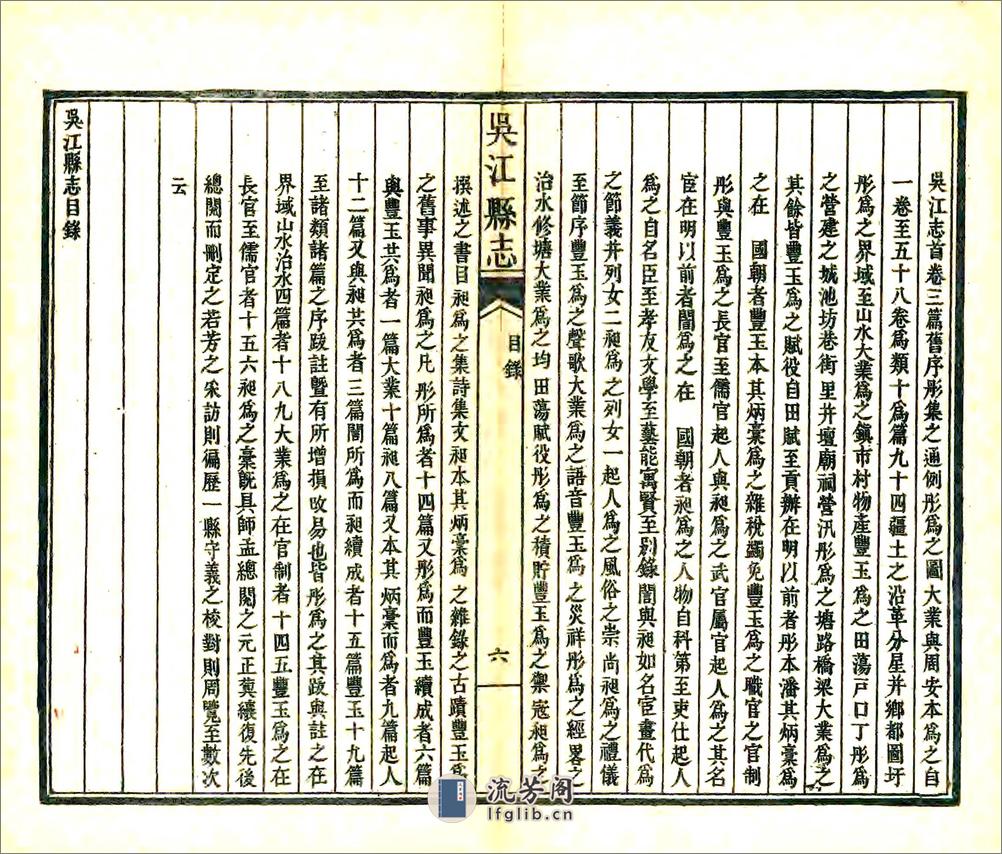 吳江志首卷三篇舊序彤集之通例彤爲之圖大業與周安本爲之自
一卷至五十八卷爲類十爲篇九十四疆土之沿革分星并鄉都圖圩
彤爲之界域至山水大業爲之鎭市村物產豐玉爲之田蕩戸口丁彤爲
之營建之城池坊巷街里井壇廟祠營汛彤爲之塘路橋梁大業爲之
其餘皆豐玉爲之賦役自田賦至貢辦在明以前者彤本潘其炳稾爲
之在　國朝者豐玉本其炳稾爲之雜稅蠲免豐玉爲之職官之官制
彤與豐玉爲之長官至儒官起人與昶爲之武官屬官起人爲之其名
宦在明以前者誾爲之在　國朝者昶爲之人物自科第至吏仕起人
爲之自名臣至孝友文學至藝能寓賢至别錄誾與昶如名宦畫代爲
之節義并列女二昶爲之列女一起人爲之風俗之崇尚昶爲之禮儀
至節序豐玉爲之聲歌大業爲之語音豐玉爲之災祥彤爲之經畧之
治水修塘大業爲之均田蕩賦役彤爲之積貯豐玉爲之禦寇昶爲之
吳江縣志
目錄
六
撰述之書目昶爲之集詩集文昶本其炳稾爲之雜錄之古蹟豐玉爲
之舊事異聞昶爲之凡彤所爲者十四篇又彤爲而豐玉續成者六篇
與豐玉共爲者一篇大業十篇昶八篇又本其炳稾而爲者九篇起人
十二篇又與昶共爲者三篇誾所爲而昶續成者十五篇豐玉十九篇
至諸類諸篇之序跋註暨有所增損攺易也皆彤爲之其跋與註之在
界域山水治水四篇者十八九大業爲之在官制者十四五豐玉爲之在
長官至儒官者十五六昶爲之稾旣具師孟總閱之元正蓂纕復先後
總閱而刪定之若芳之采訪則徧歷一縣守義之校對則周覽至數次
云
吳江縣志目錄
流芳阁
lfglib.cn